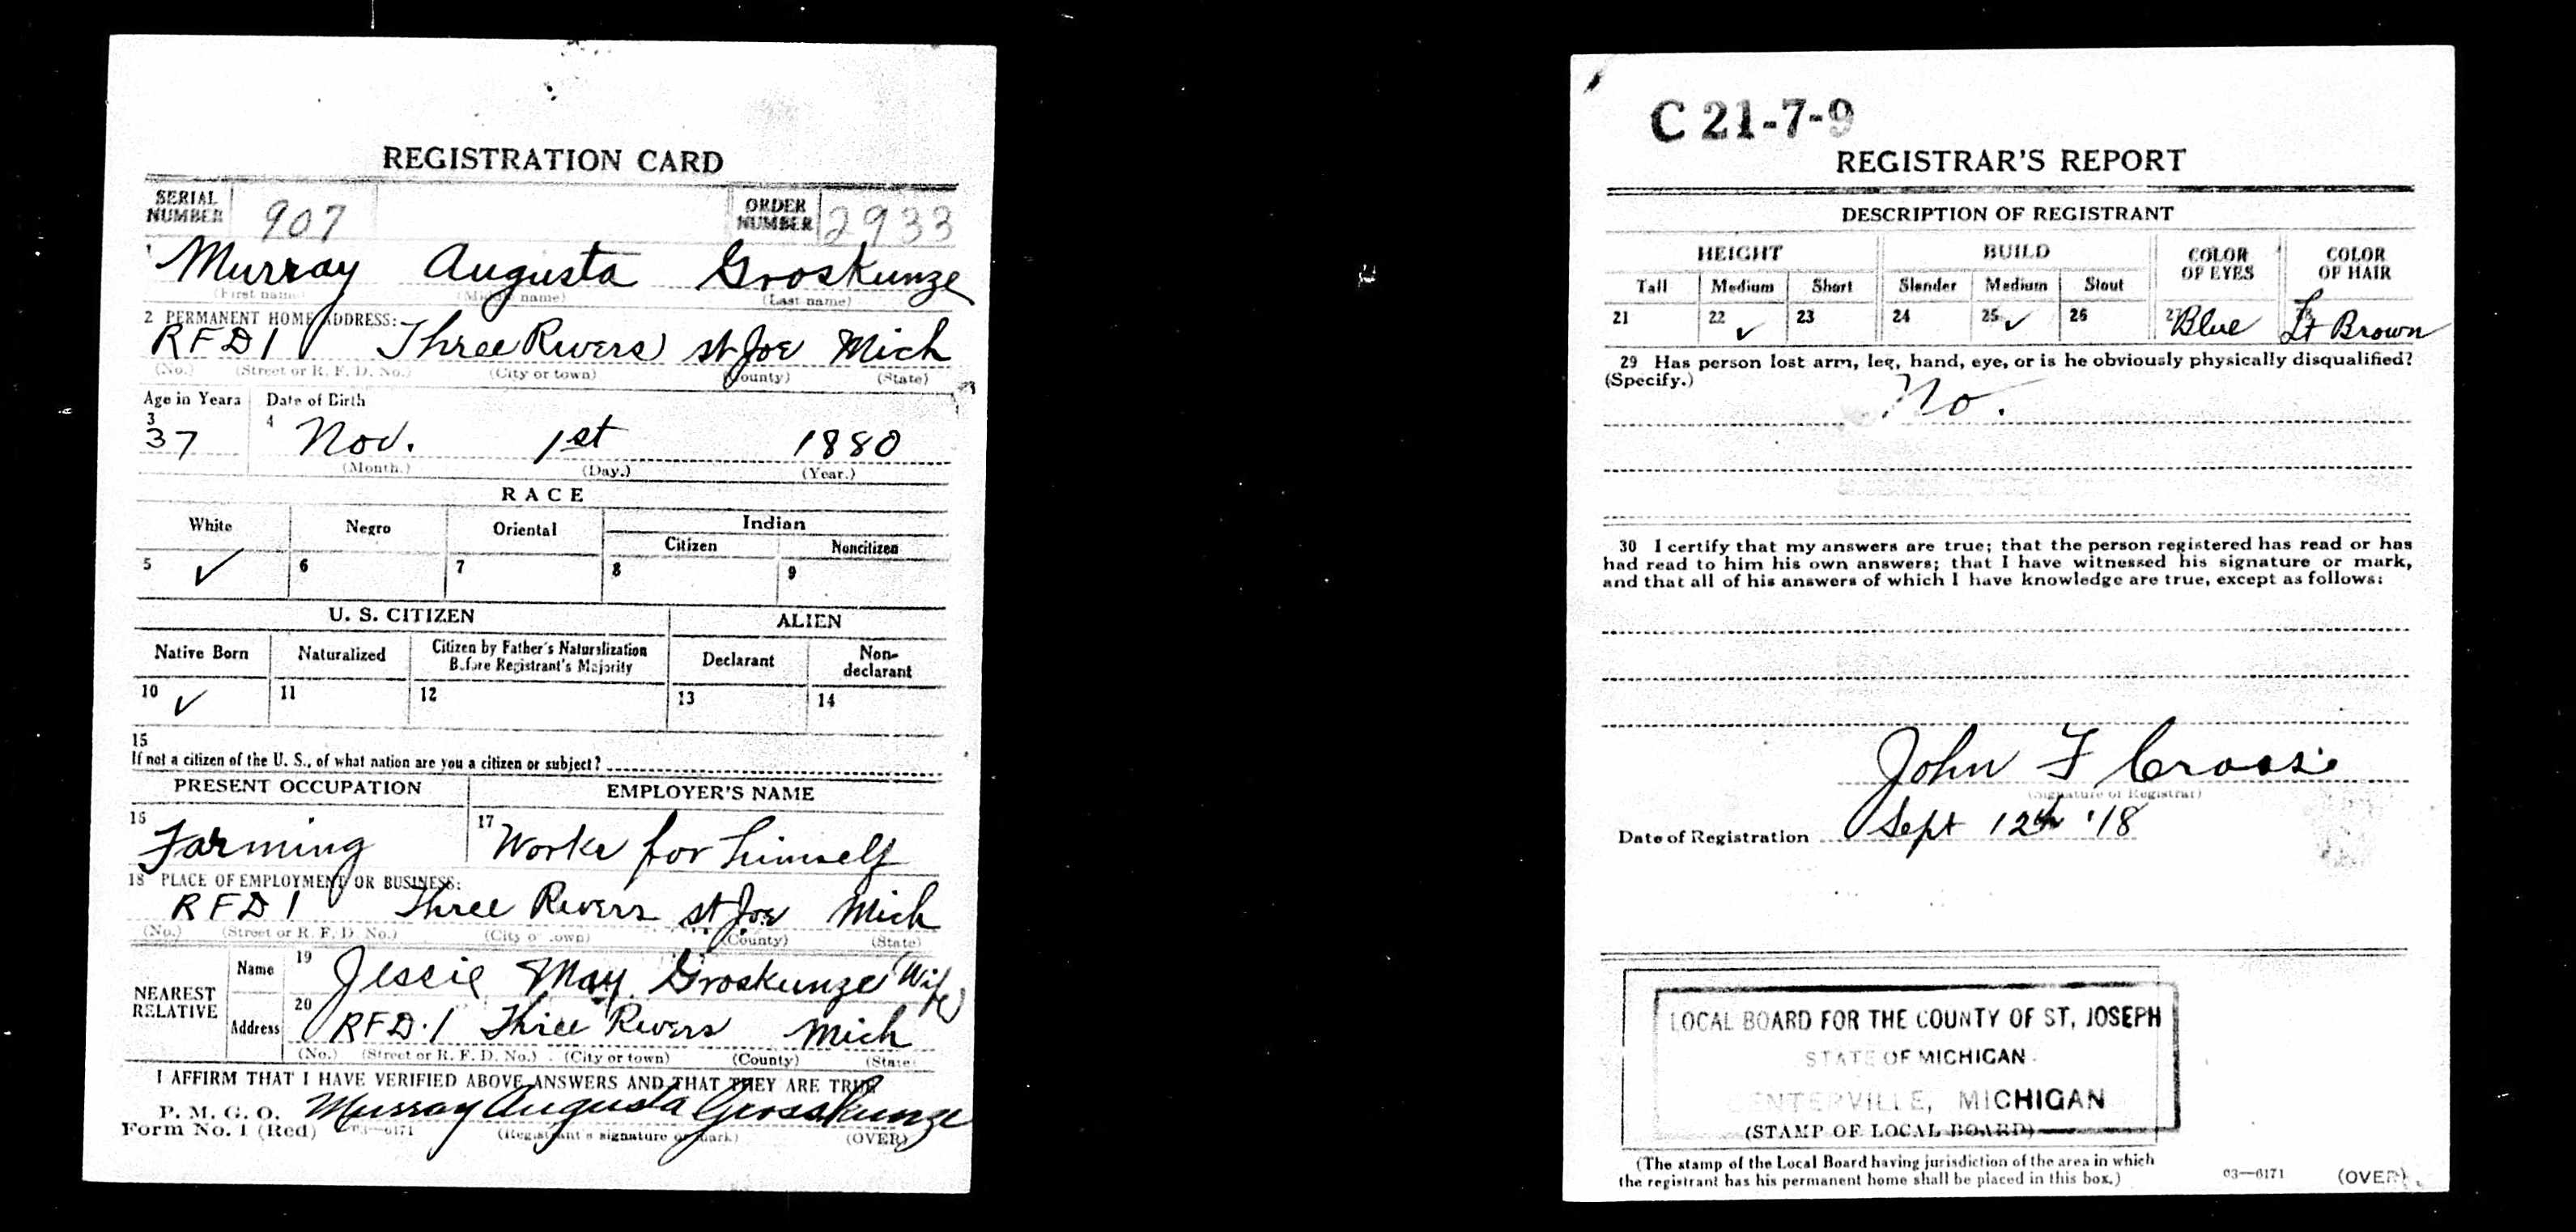 REGISTRATION CARD
SERIAL NUMBER 907 ORDER NUMBER 2933
1 Murray Augusta Groskunze
(First name) (Middle name) (Last name)
2 PERMANENT HOME ADDRESS:
RFD 1 Three Rivers St Joe Mich
(No.) (Street or R. F. D. No.) (City or town) (County) (State)
Age in Years Date of Birth
3 37 4 Nov. 1st 1880
(Month.) (Day.) (Year.)
RACE
White Negro Oriental Indian
Citizen Noncitizen
5 ✓ 6 7 8 9
U. S. CITIZEN ALIEN
Native Born Naturalized Citizen by Father's Naturalization Before Registrant's Majority Declarant Non-declarant
10 ✓ 11 12 13 14
15
If not a citizen of the U. S., of what nation are you a citizen or subject?
PRESENT OCCUPATION EMPLOYER'S NAME
16 Farming 17 Works for himself
18 PLACE OF EMPLOYMENT OR BUSINESS:
RFD 1 Three Rivers St Joe Mich
(No.) (Street or R. F. D. No.) (City or town) (County) (State)
NEAREST RELATIVE
Name 19 Jessie May Groskunze (Wife)
Address 20 RFD.1 Three Rivers Mich
(No.) (Street or R. F. D. No.) (City or town) (County) (State)
I AFFIRM THAT I HAVE VERIFIED ABOVE ANSWERS AND THAT THEY ARE TRUE
P. M. G. O.
Form No. 1 (Red) 03—6171 Murray Augusta Grosskunze
(Registrant's signature or mark) (OVER)
C 21-7-9
REGISTRAR'S REPORT
DESCRIPTION OF REGISTRANT
HEIGHT BUILD COLOR OF EYES COLOR OF HAIR
Tall Medium Short Slender Medium Stout
21 22 ✓ 23 24 25 ✓ 26 27 Blue 28 Lt Brown
29 Has person lost arm, leg, hand, eye, or is he obviously physically disqualified?
(Specify.) No.
30 I certify that my answers are true; that the person registered has read or has
had read to him his own answers; that I have witnessed his signature or mark,
and that all of his answers of which I have knowledge are true, except as follows:
John F Cross
(Signature of Registrar)
Date of Registration Sept 12th '18
LOCAL BOARD FOR THE COUNTY OF ST. JOSEPH
STATE OF MICHIGAN
CENTERVILLE, MICHIGAN
(STAMP OF LOCAL BOARD)
(The stamp of the Local Board having jurisdiction of the area in which
the registrant has his permanent home shall be placed in this box.)
03—6171 (OVER)